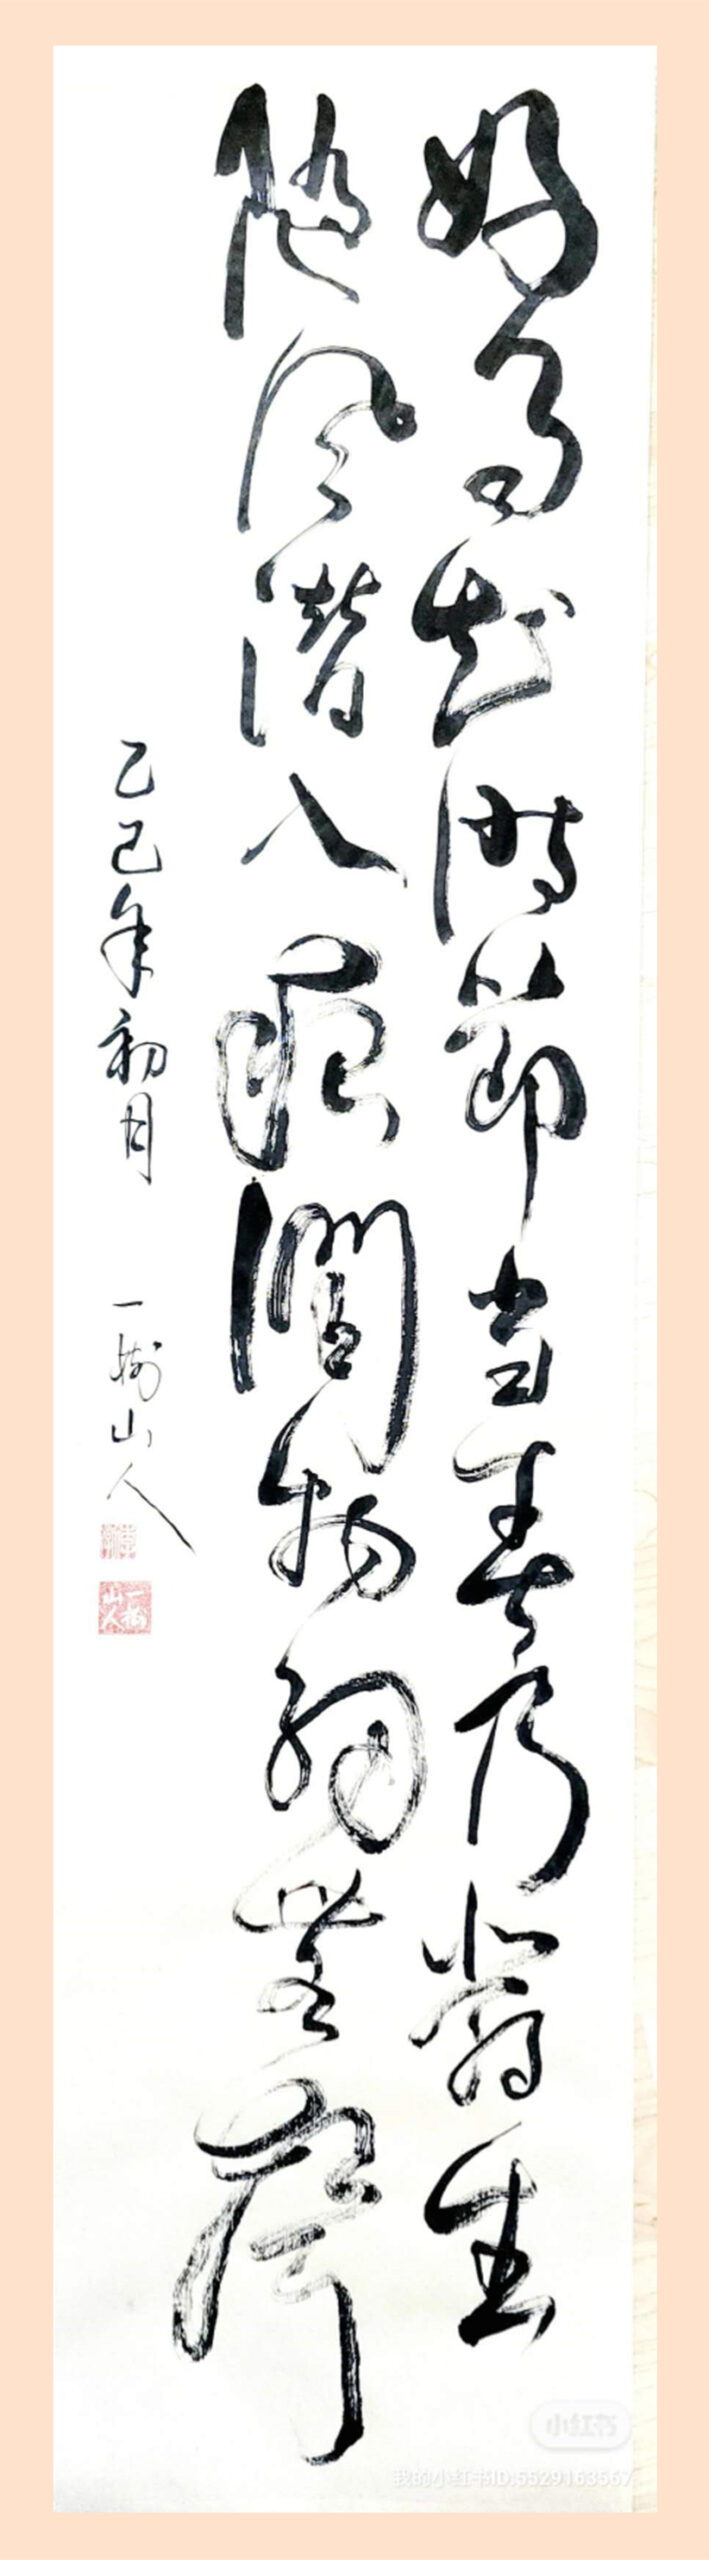 好雨知時節当春乃發生
隨風潛入夜潤物細無聲
乙巳年初月 一樹山人
一樹山人
小红书
我的小红书ID:5529163567